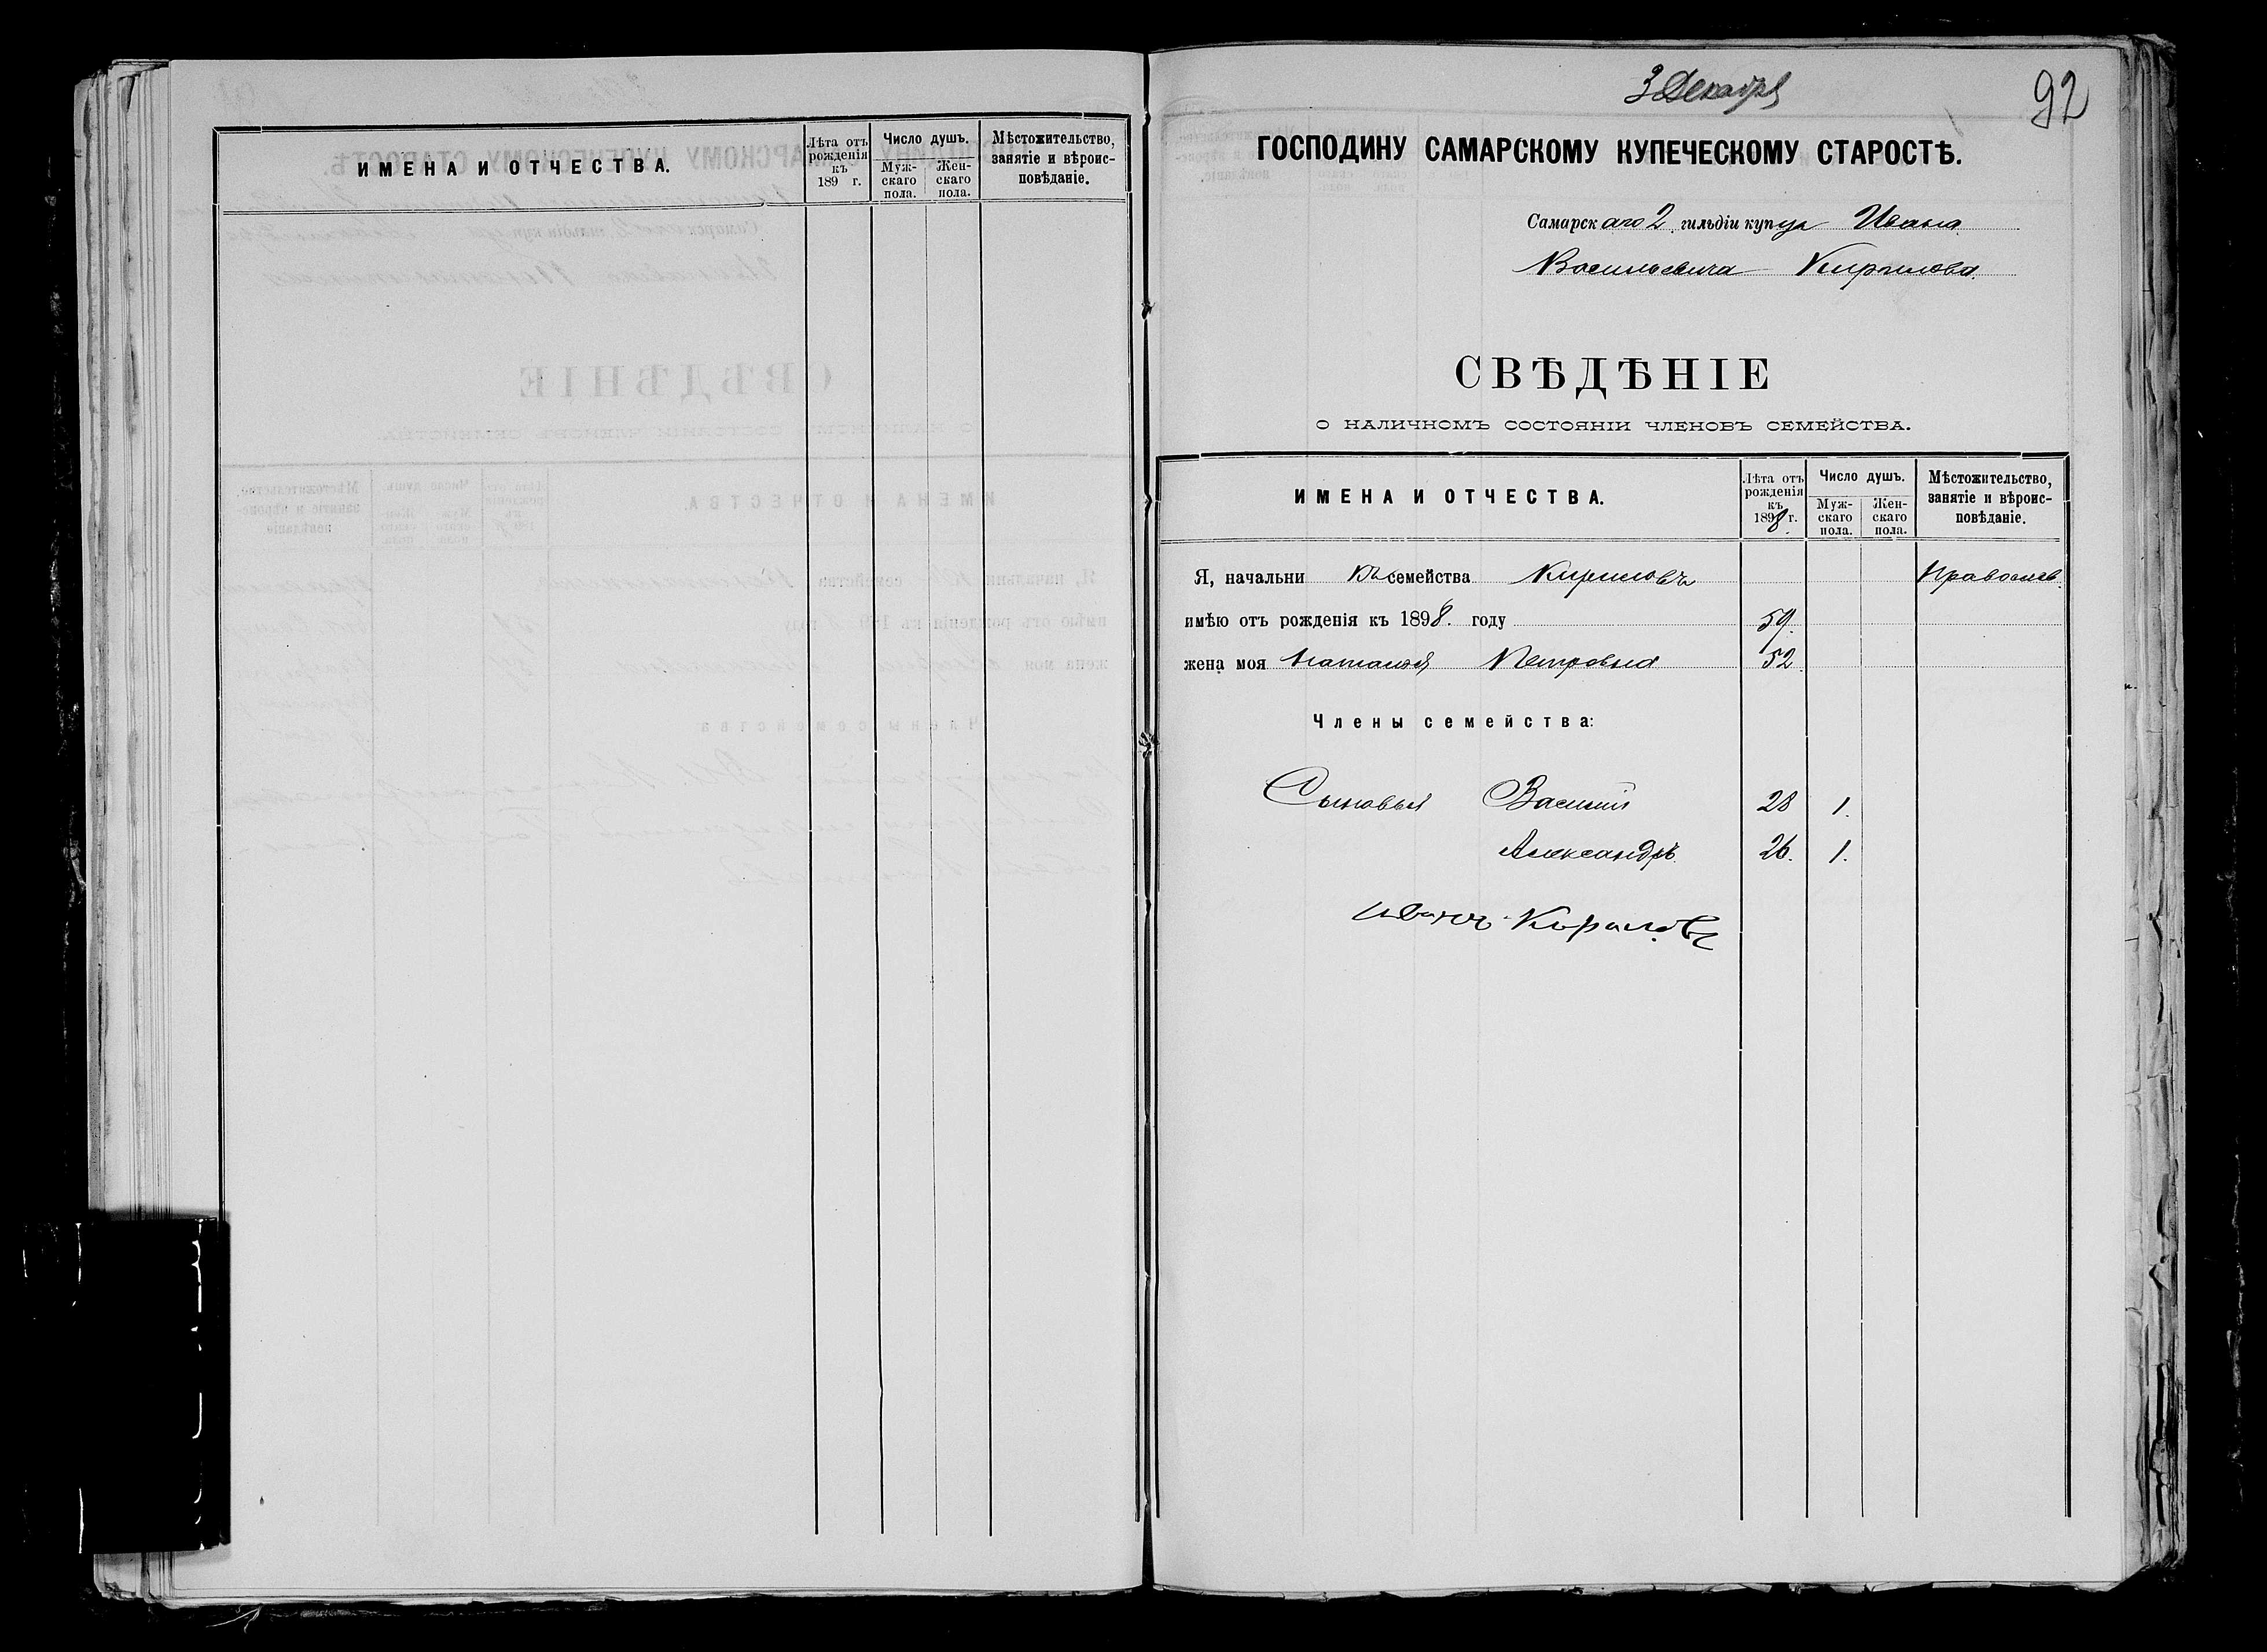 ИМЕНА И ОТЧЕСТВА.
Лѣта отъ рожденія къ 189 г.
Число душъ.
Муж-скаго пола.
Жен-скаго пола.
Мѣстожительство, занятіе и вѣроис-повѣданіе.
3 Декабря
92
ГОСПОДИНУ САМАРСКОМУ КУПЕЧЕСКОМУ СТАРОСТѢ.
Самарскаго 2 гильдіи купца Ивана
Васильевича Кирилова
СВѢДѢНІЕ
О НАЛИЧНОМЪ СОСТОЯНІИ ЧЛЕНОВЪ СЕМЕЙСТВА.
ИМЕНА И ОТЧЕСТВА.
Лѣта отъ рожденія къ 1898 г.
Число душъ.
Муж-скаго пола.
Жен-скаго пола.
Мѣстожительство, занятіе и вѣроис-повѣданіе.
Я, начальникъ семейства Кириловъ Православ.
имѣю отъ рожденія къ 1898. году 59.
жена моя Наталья Петровна 52
Члены семейства:
Сыновья Василій 28 1.
Александръ 26. 1.
Иванъ Кириловъ